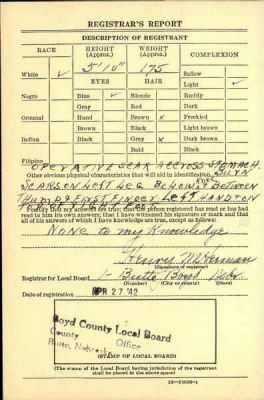 REGISTRAR'S REPORT
DESCRIPTION OF REGISTRANT
RACE HEIGHT (Approx.) WEIGHT (Approx.) COMPLEXION
5' 10" 175 Sallow
White ✓ EYES HAIR Light ✓
Negro Blue ✓ Blonde Ruddy
Gray Red Dark
Oriental Hazel Brown x Freckled
Brown Black Light brown
Indian Black Gray x Dark brown
Bald Black
Filipino
OPERATIVE SCAR ACCROSS STOMACH
Other obvious physical characteristics that will aid in identification BURN
SCARS ON LEFT LEG BEHIND BETWEEN
THUMB & FIRST FINGER LEFT HAND
I certify that my answers are true; that the person registered has read or has had
read to him his own answers; that I have witnessed his signature or mark and that
all of his answers of which I have knowledge are true, except as follows:
None to my Knowledge
Henry
(Signature of registrar)
Registrar for Local Board 1 Butte Boyd Nebr.
Date of registration APR 27 '42
Boyd County Local Board
County Office
Butte, Nebraska
(STAMP OF LOCAL BOARD)
(The stamp of the Local Board having jurisdiction of the registrant
shall be placed in the above space)